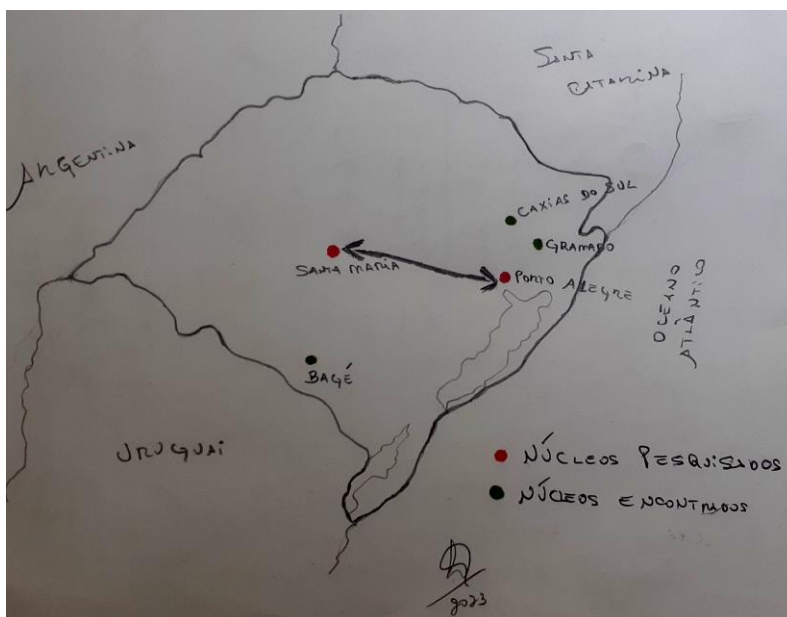 SANTA
CATARINA
ARGENTINA
CAXIAS DO SUL
GRAMADO
SANTA MARIA
PORTO ALEGRE
OCEANO
ATLÂNTIO
BAGÉ
URUGUAI
NÚCLEOS PESQUISADOS
NÚCLEOS ENCONTRADOS
2023